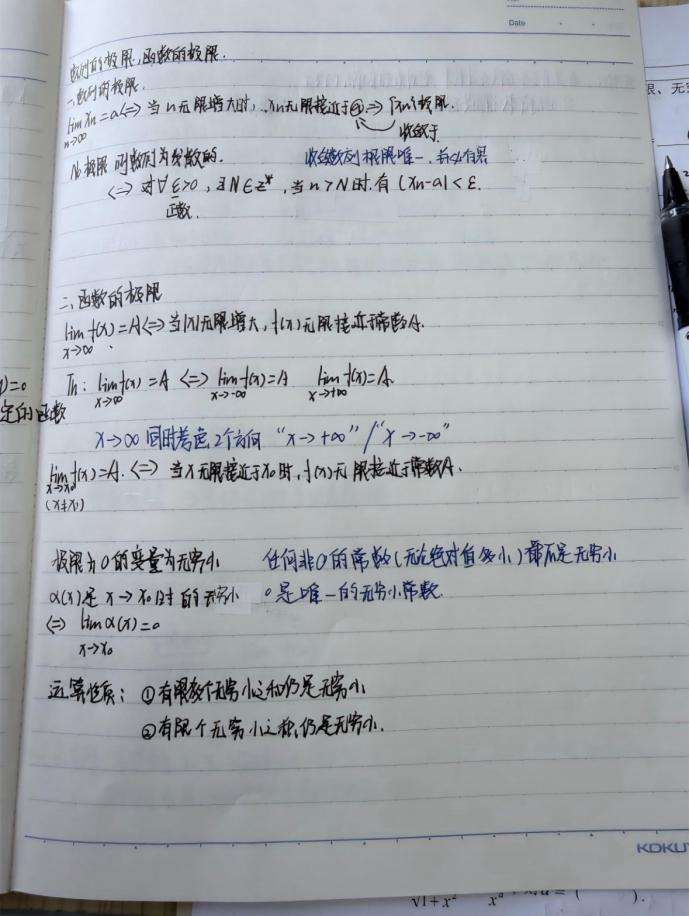 Date
数列的极限,函数的极限.
一、数列的极限.
lim xn = a <=> 当n无限增大时, xn无限接近于a => {xn}极限.
n→∞
收敛于
No 极限 则数列为发散的. 收敛数列极限唯一,
<=> 对∀ε>0, ∃N∈Z*, 当n>N时,有|xn-a|<ε.
正数.
二、函数的极限
lim f(x)=A <=> 当|x|无限增大, f(x)无限接近于常数A.
x→∞
Th: lim f(x)=A <=> lim f(x)=A lim f(x)=A.
x→∞ x→-∞ x→+∞
=0
定的函数
x→∞ 同时考虑2个方向 “x→+∞” / “x→-∞”
lim f(x)=A. <=> 当x无限接近于x0时, f(x)无限接近于常数A.
x→x0
极限为0的变量为无穷小 任何非0的常数(无论绝对值多小)都不是无穷小
α(x)是 x→x0时的无穷小 0是唯一的无穷小常数.
<=> lim α(x)=0
x→x0
运算性质: ①有限个无穷小之和仍是无穷小
②有限个无穷小之积,仍是无穷小.
KOKU